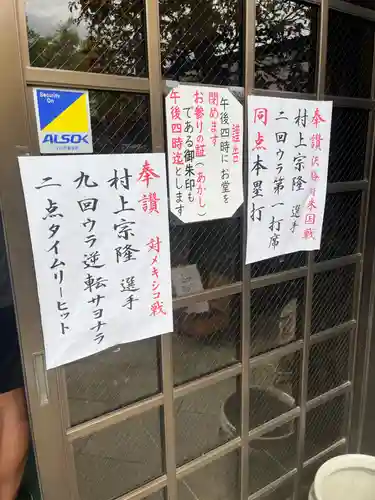 Security On
ALSOK
奉讃 対メキシコ戦
村上宗隆 選手
九回ウラ逆転サヨナラ
二点タイムリーヒット
謹告
午後四時にお堂を
閉めます
お参りの証(あかし)
である御朱印も
午後四時迄とします
奉讃 決勝対米国戦
村上宗隆 選手
二回ウラ第一打席
同点本塁打